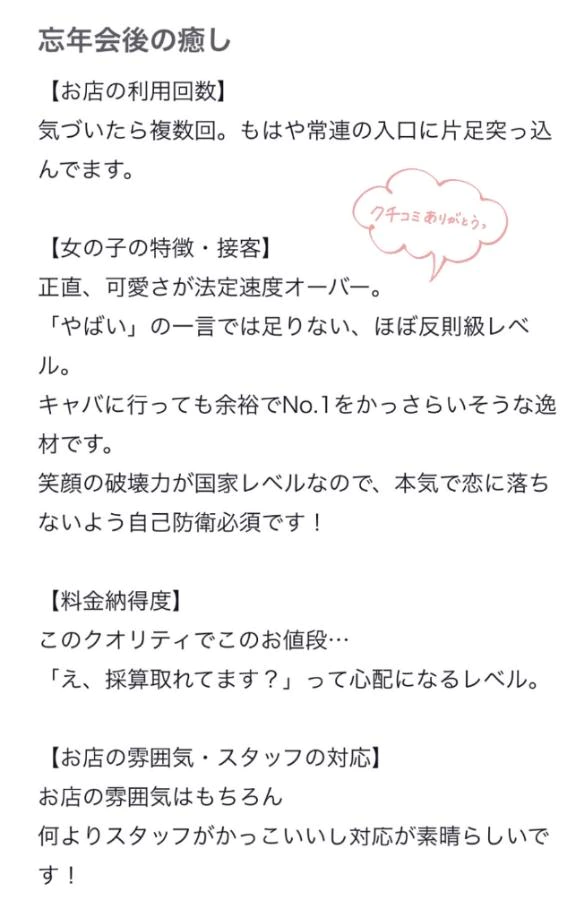 忘年会後の癒し
【お店の利用回数】
気づいたら複数回。もはや常連の入口に片足突っ込
んでます。
クチコミありがとう。
【女の子の特徴・接客】
正直、可愛さが法定速度オーバー。
「やばい」の一言では足りない、ほぼ反則級レベ
ル。
キャバに行っても余裕でNo.1をかっさらいそうな逸
材です。
笑顔の破壊力が国家レベルなので、本気で恋に落ち
ないよう自己防衛必須です！
【料金納得度】
このクオリティでこのお値段…
「え、採算取れてます？」って心配になるレベル。
【お店の雰囲気・スタッフの対応】
お店の雰囲気はもちろん
何よりスタッフがかっこいいし対応が素晴らしいで
す！